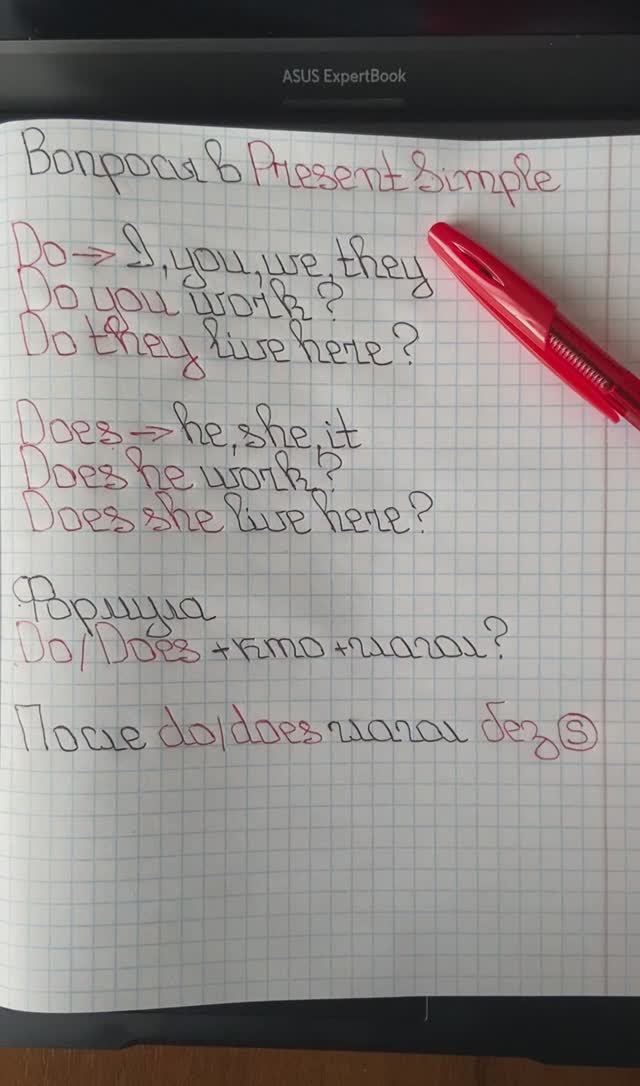 ASUS ExpertBook
Вопросы в Present Simple
Do → I, you, we, they
Do you work?
Do they live here?
Does → he, she, it
Does he work?
Does she live here?
Формула
Do/Does + кто + глагол?
После do/does глагол без s